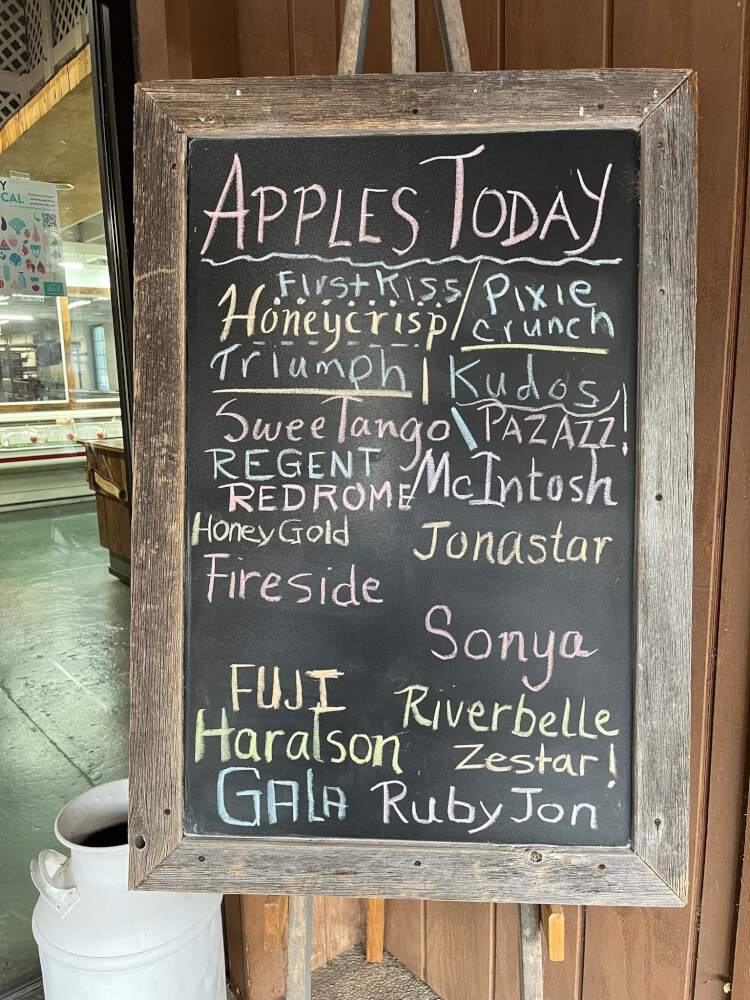 APPLES TODAY
First Kiss
Honeycrisp / Pixie crunch
Triumph | Kudos
SweeTango \ PAZAZZ!
REGENT
McIntosh
REDROME
HoneyGold
Jonastar
Fireside
Sonya
FUJI
Riverbelle
Haralson
Zestar!
GALA
RubyJon